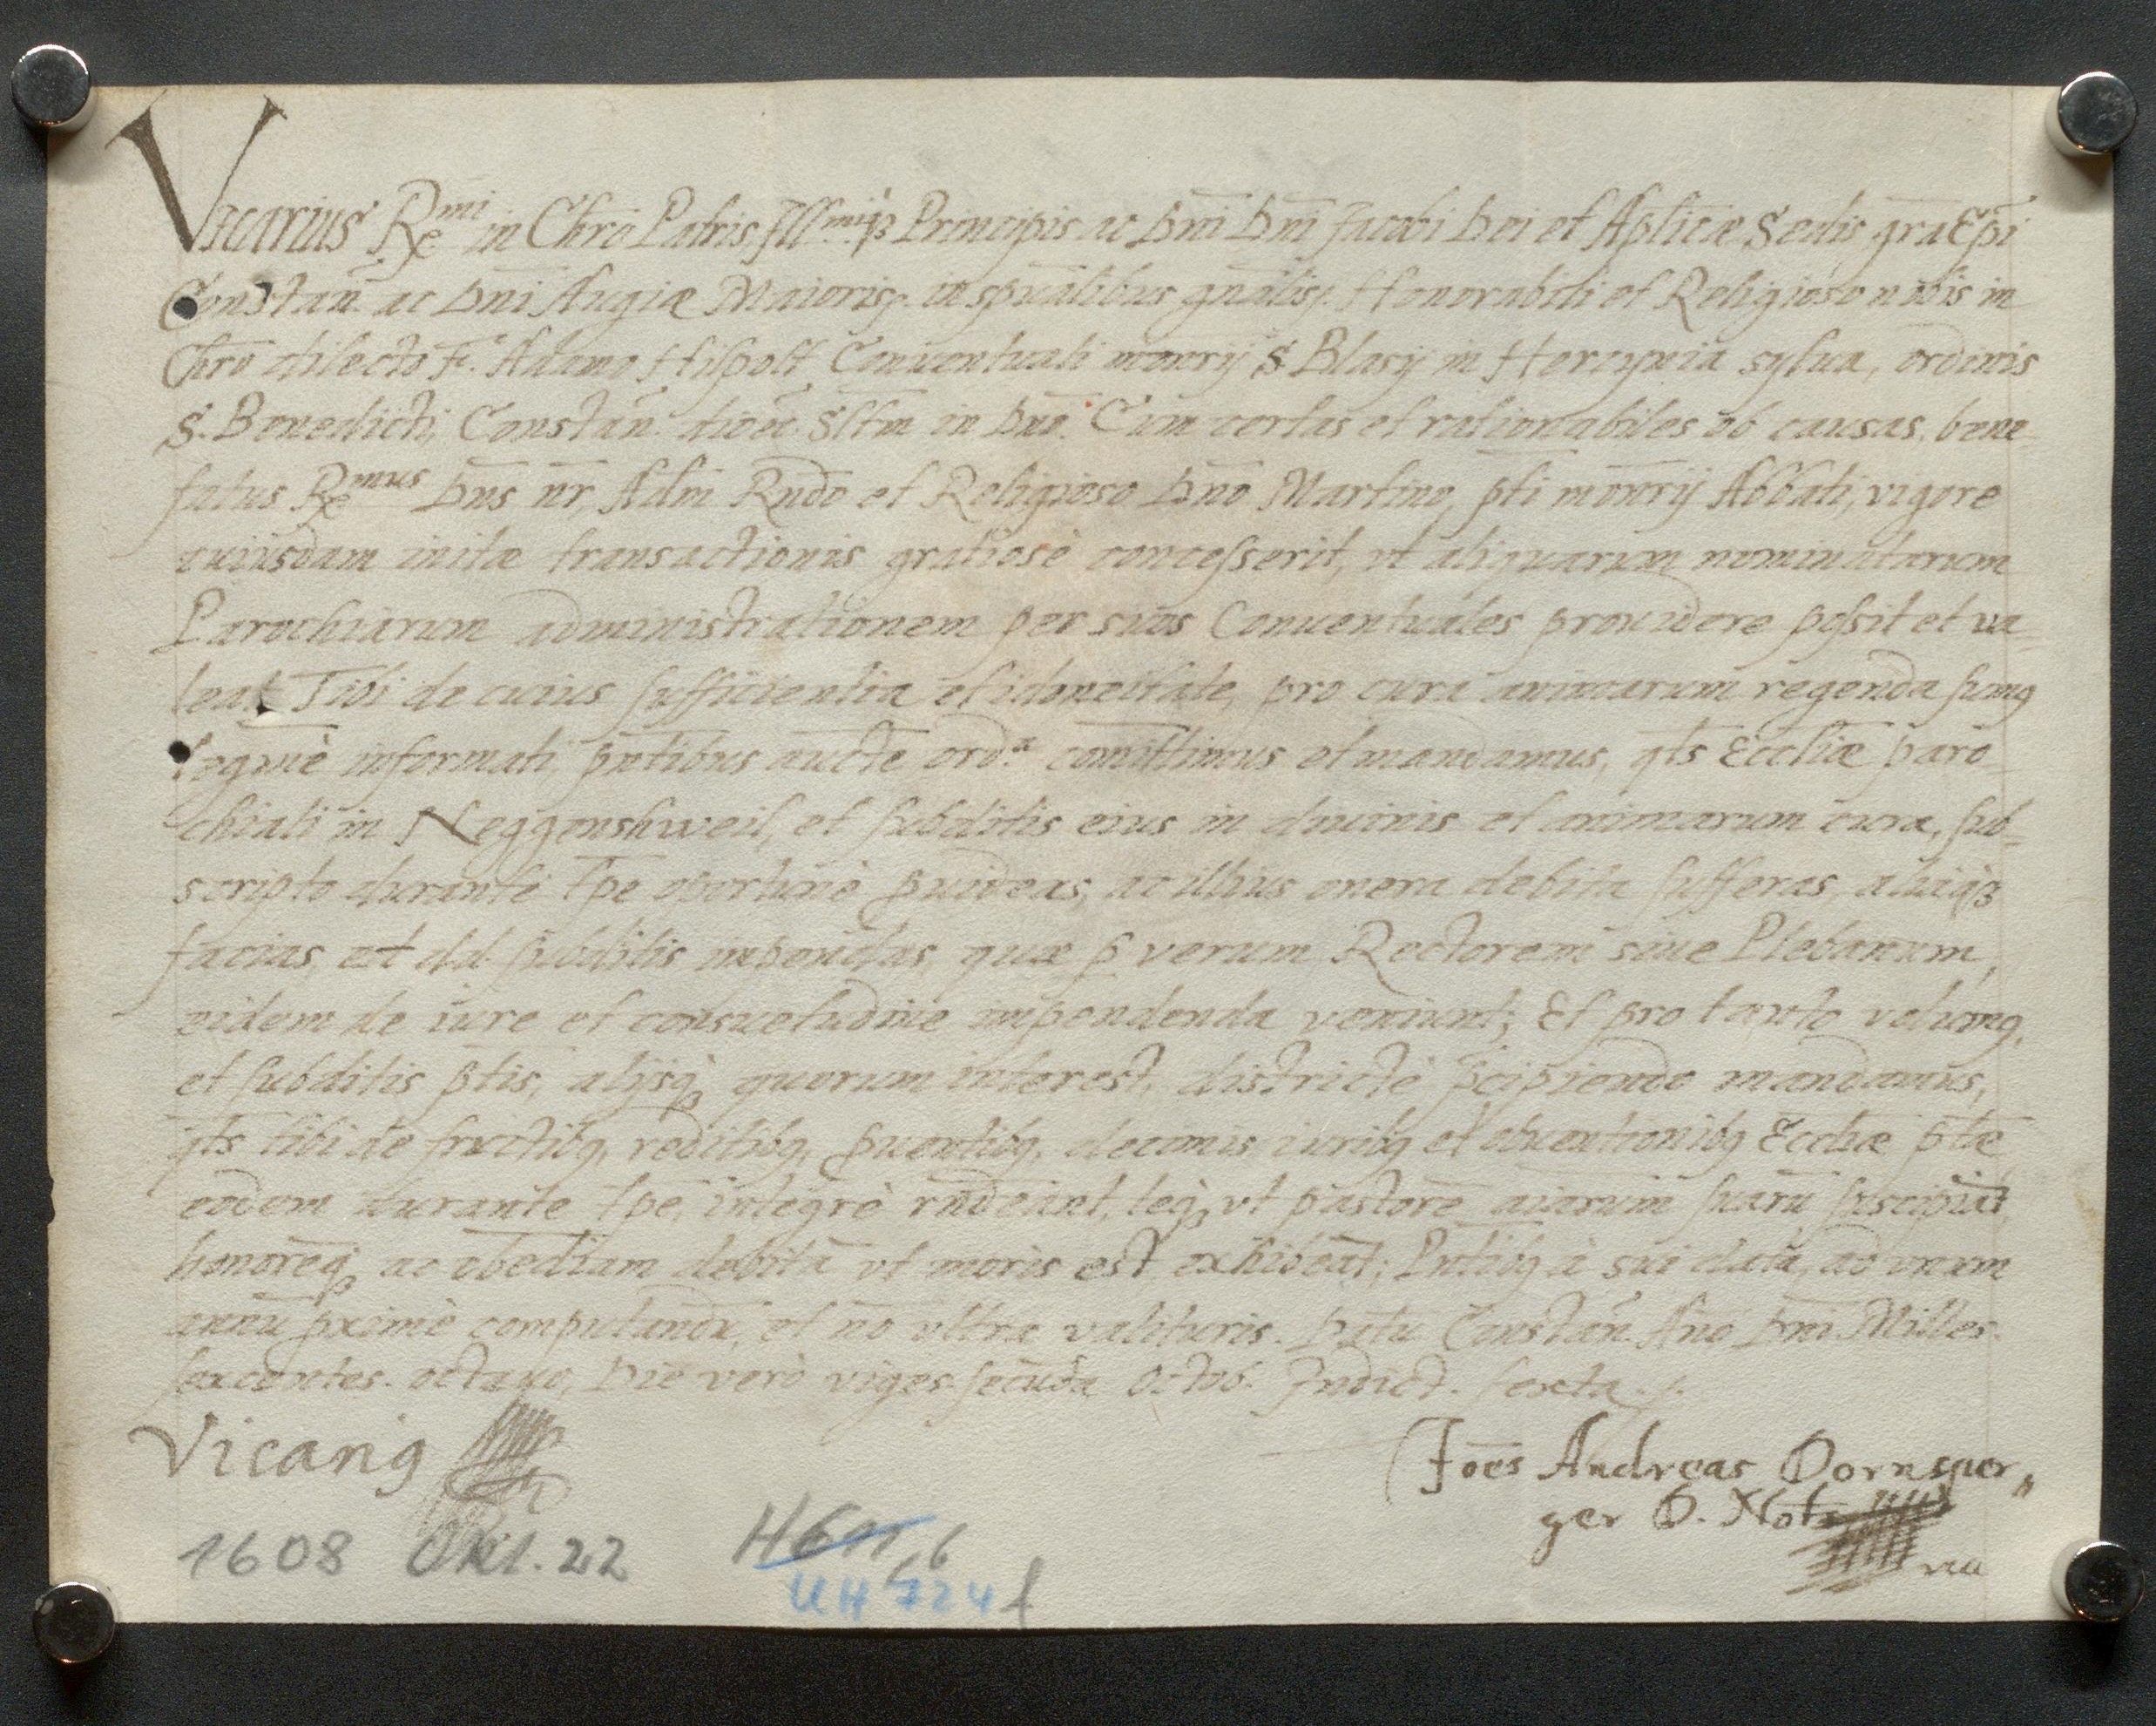 Vicarius Rmi in Chro Patris Illmiq₃ Principis ac Dni Dni Jacobi Dei et Aplicæ Sedis gra Epi
Constan. ac Dni Augiæ Maioris p. in spualibus gnalis p. Honorabili et Religioso nobis in
Chro dilecto F. Adamo Hilpolt Conuentuali monrij S Blasij in Hercynia sylua, ordinis
S. Benedicti, Constan. dioec. Sltm in Dno. Cum certas et rationabiles ob causas, bene-
fatus Rmus Dns nr, Adm Rndo et Religioso Dno Martino, pti monrij Abbati, vigore
cuiusdam initæ transactionis gratiosè concesserit, vt aliquarum nominatarum
Parochiarum administrationem per suos Conuentuales prouidere possit et va-
leat Tibi de cuius sufficientia et idoneitate, pro cura animarum regenda sumꝰ
legitimè informati, pntibus aucte ord.a comittimus et mandamus, qts Eccliæ paro-
chiali in Neggenshweil, et subditis eius in diuinis et animarum cura, sub-
scripto durante tpe oportunè puideas, ac illius onera debita sufferas, aliaq₃
facias, et dd. subditis impendas, quæ p verum Rectorem siue Plebanum,
eidem de iure et consuetudine impendenda veniunt; Et pro tanto volumꝰ,
et subditis ptis, alijsq₃ quorum interest, districtè pcipiendo mandamus,
qts tibi de fructibꝰ, reditibꝰ, puentibꝰ, decimis iuribꝰ et obuentionibꝰ Eccliæ ptæ
eodem durante tpe, integrè rndeant, teq₃ vt pastorē aiarum suarū suscipiāt,
honoremq₃ ac obediam debitā vt moris est exhibeāt; Pntibꝰ à sui data, ad vnum
annū pximè computandū, et nō vltra valituris. Datū Constan. Ano Dni Milles.
sexcentes. octauo, Die verò viges. secūda Octob. Indict. sexta. /.
Vicariꝰ
Joēs Andreas Dornsper„
ger D. Nots
1608 Okt. 22
UH 724 f